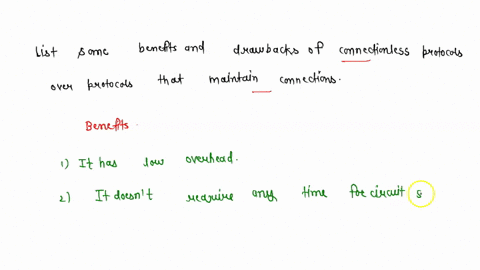 List some benefits and drawbacks of connectionless protocols
over protocols that maintain connections.
Benefits.
1) It has low overhead.
2) It doesn't require any time for circuit s